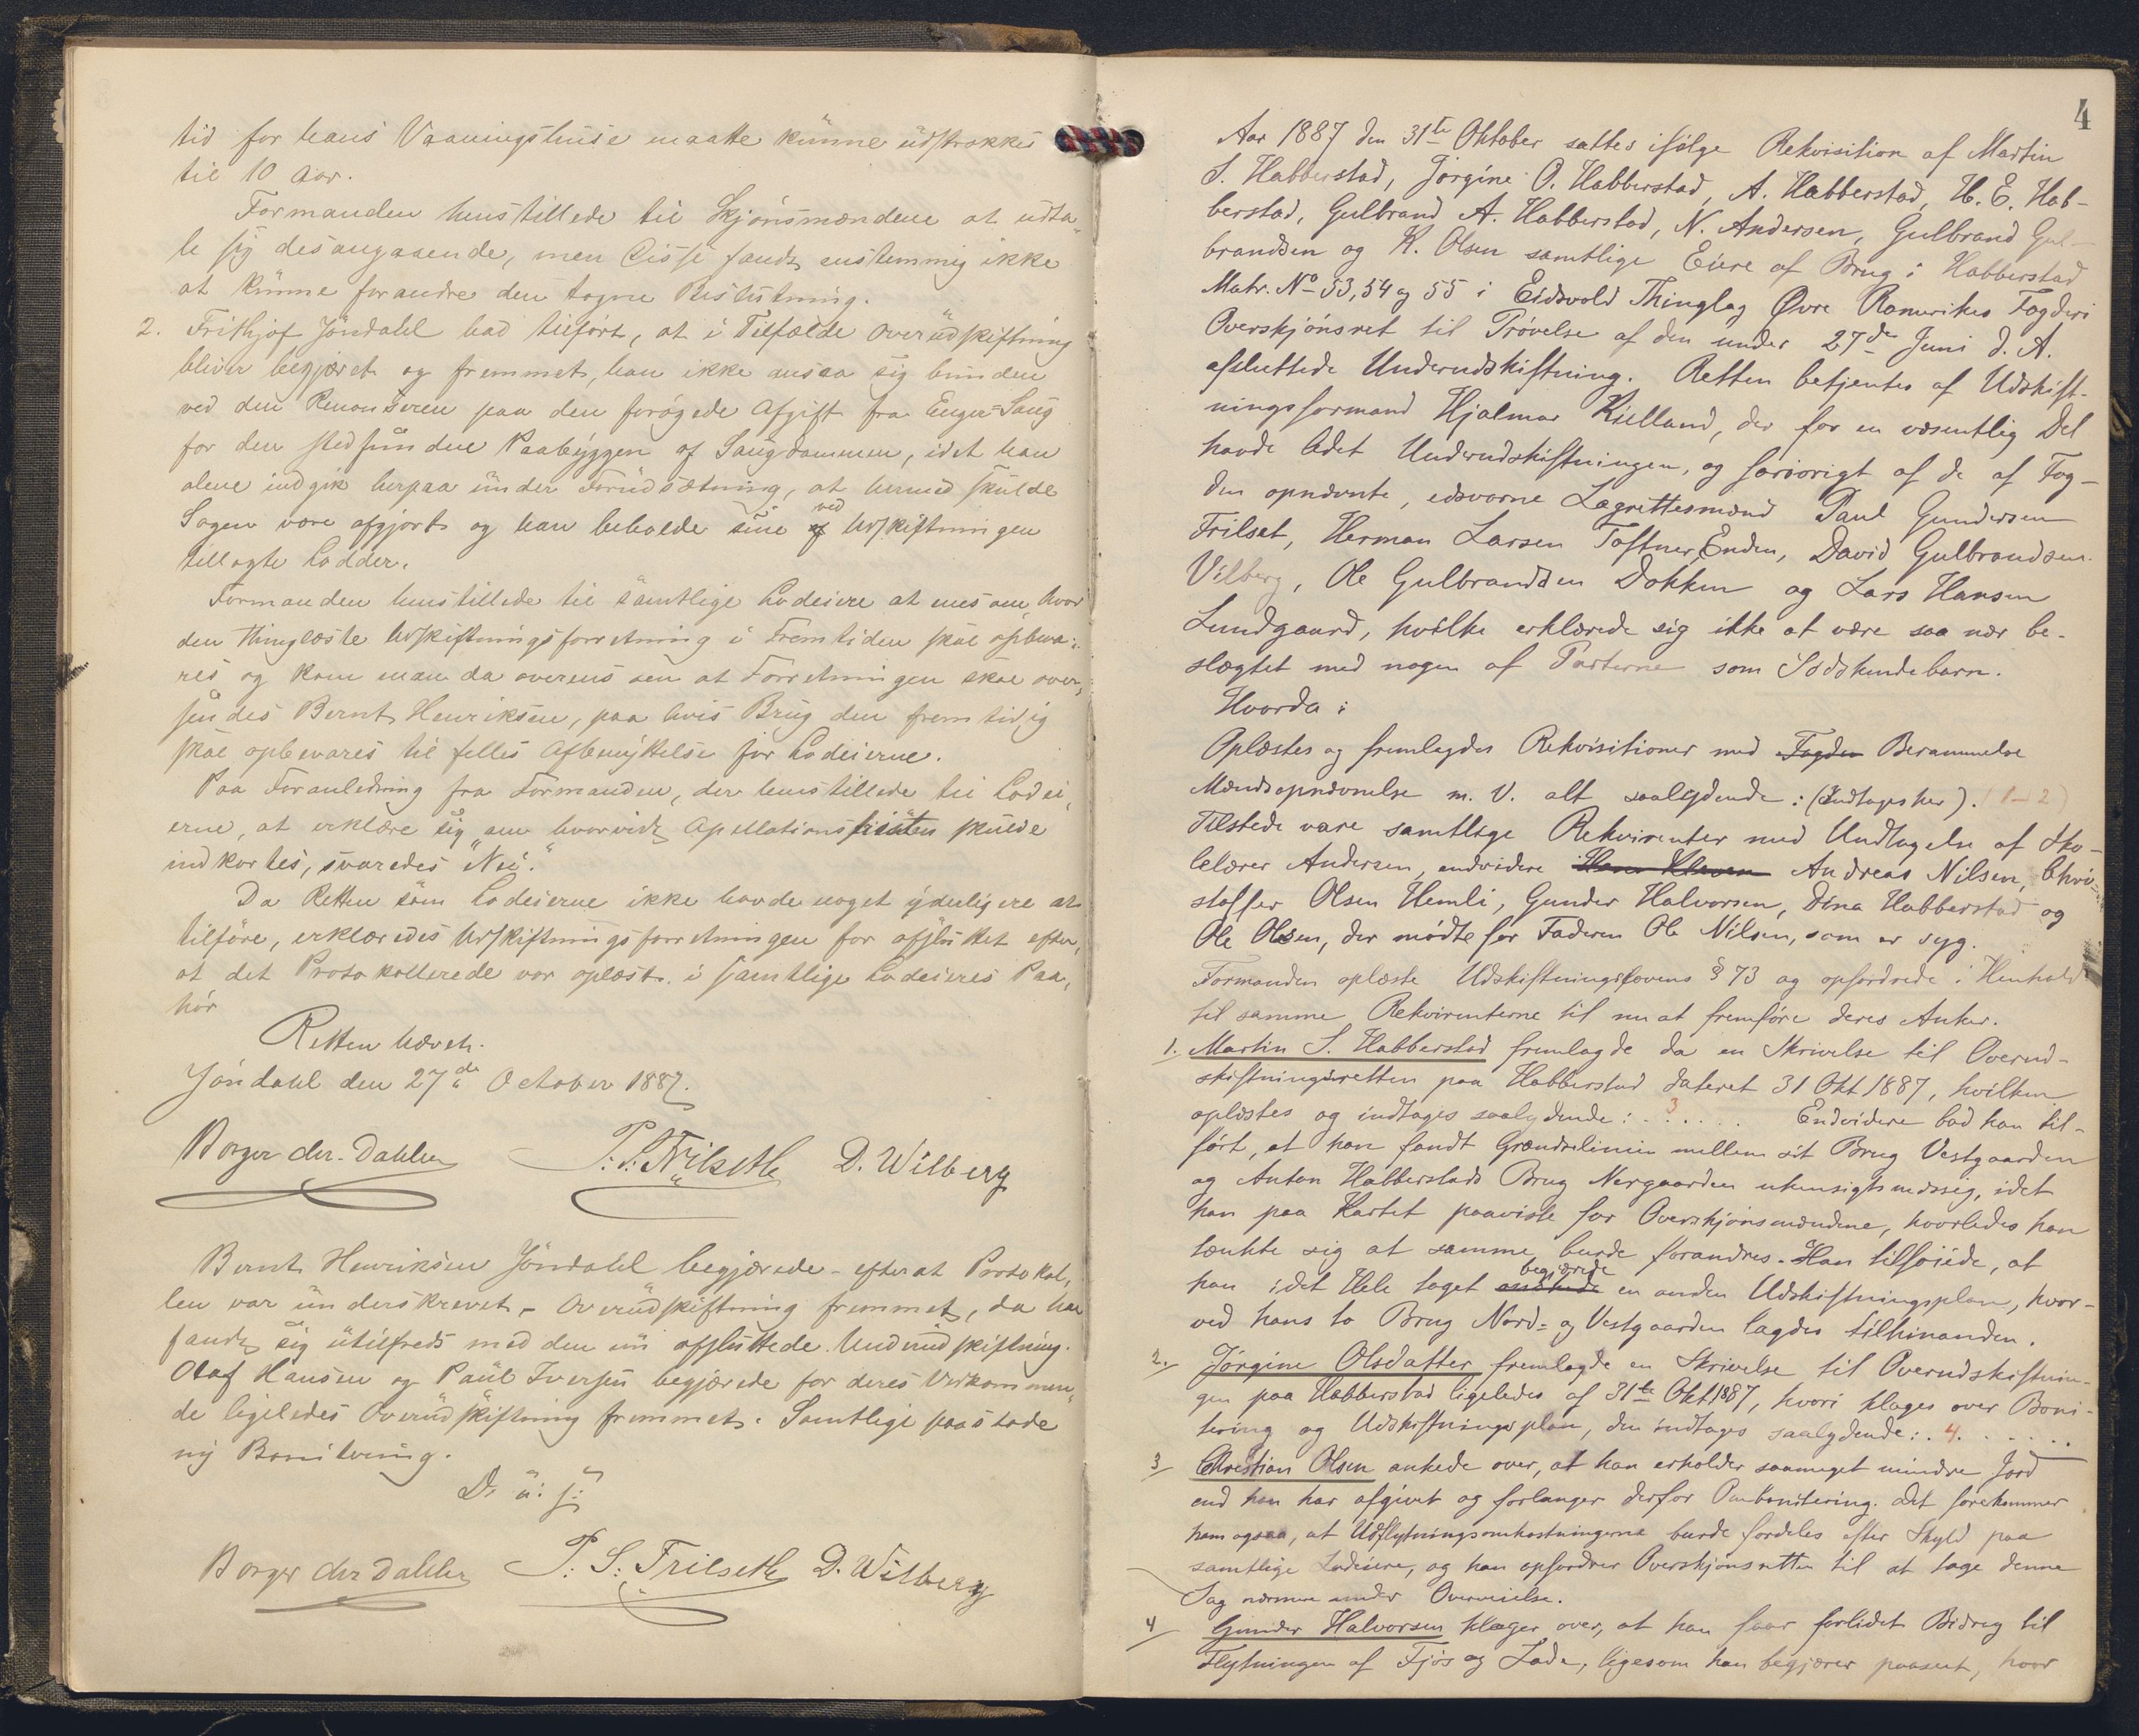 tid for hans Vaaningshuse maatte kunne udstrækkes
til 10 Aar.
Formanden henstillede til Skjönsmændene at udta„
le sig desangaaende, men Disse fandt enstemmig ikke
at kunne forandre den tagne Beslutning.
2. Frithjof Jöndahl bad tilfört, at i Tilfælde Overudskiftning
bliver begjæret og fremmet, han ikke ansaa sig bunden
ved den Renonseren paa den forögede Afgift fra Enger=Saug
for den stedfundne Paabyggen af Saugdammen, idet han
alene indgik herpaa under Forudsætning, at hermed skulde
Sagen være afgjort og han beholde sine af ved Udskiftningen
tillagte Lodder.
Formanden henstillede til samtlige Lodeiere at enes om, hvor
den thinglæste Udskiftningsforretning i Fremtiden skal opbeva„
res og kom man da overens om at Forretningen skal over„
sendes Bernt Henriksen, paa hvis Brug den fremtidig
skal opbevares til felles Afbenyttelse for Lodeierne.
Paa Foranledning fra Formanden, der henstillede til Lodei„
erne, at erklære sig om hvorvidt Apellationsfristen skulde
indkortes, svaredes "Nei."
Da Retten som Lodeierne ikke havde noget yderligere at
tilföre, erklæredes Udskiftningsforretningen for afsluttet efter„
at det Protokollerede var oplæst i samtlige Lodeieres Paa„
hör
Retten hævet.
Jöndahl den 27de October 1887.
Borger chr. Dahlen P. S. Frilseth D. Wilberg
Bernt Henriksen Jöndahl begjærede - efterat Protokol„
len var underskrevet - Overudskiftning fremmet, da han
fandt sig utilfreds med den nu afsluttede Underudskiftning.
Olaf Hansen og Paul Iversen begjærede for deres Vedkommen„
de ligeledes Overudskiftning fremmet. Samtlige paastode
ny Bonitering.
D. u: s:
Borger chr Dahlen P. S. Frilseth D. Wilberg
4
Aar 1887 den 31te Oktober sattes ifølge Rekvisition af Martin
S. Habberstad, Jörgine O. Habberstad, A. Habberstad, H. E. Hab-
berstad, Gulbrand A. Habberstad, N. Andersen, Gulbrand Gul-
brandsen og K. Olsen samtlige Eiere af Brug i Habberstad
Matr. No 53, 54 og 55 i Eidsvold Thinglag Øvre Romerikes Fogderi
Overskjönsret til Prövelse af den under 27de Juni d. A.
afsluttede Underudskiftning. Retten betjentes af Udskift-
ningsformand Hjalmar Kielland, der for en væsentlig Del
havde ledet Underudskiftningen, og forövrigt af de af Fog-
den opnævnte, edsvorne Lagrettesmænd Paul Gundersen
Frilset, Herman Larsen Toftner Enden, David Gulbrandsen
Vilberg, Ole Gulbrandsen Dokken og Lars Hansen
Lundgaard, hvilke erklærede sig ikke at være saa nær be-
slægtet med nogen af Parterne som Sødskendebarn.
Hvorda:
Oplæstes og fremlagdes Rekvisitioner med Fogden Berammelse
Mændsopnævnelse m. V. alt saalydende: (Indtages her). (1-2)
Tilstede vare samtlige Rekvirenter med Undtagelse af Sko-
lelærer Andersen, endvidere Andreas Nilsen, Chri-
stoffer Olsen Hemli, Gunder Halvorsen, Dina Habberstad og
Ole Olsen, der mödte for Faderen Ole Nilsen, som er syg.
Formanden oplæste Udskiftningslovens § 73 og opfordrede i Henhold
til samme Rekvirenterne til nu at fremföre deres Anker.
1. Martin S. Habberstad fremlagde da en Skrivelse til Overud-
skiftningsretten paa Habberstad dateret 31 Okt 1887, hvilken
oplæstes og indtages saalydende: . 3 . . . . . Endvidere bad han til-
fört, at han fandt Grændselinien mellem sit Brug Vestgaarden
og Anton Habberstads Brug Nergaarden uhensigtsmæssig, idet
han paa Kartet paaviste for Overskjönsmændene, hvorledes han
tænkte sig at samme burde forandres. Han tilföiede, at
han idet Hele taget önskede begjærede en anden Udskiftningsplan, hvor-
ved hans to Brug Nord= og Vestgaarden lagdes tilhinanden.
2. Jörgine Olsdatter fremlagde en Skrivelse til Overudskiftnin-
gen paa Habberstad ligeledes af 31te Okt 1887, hvori klages over Boni-
tering og Udskiftningsplan, den indtages saalydende: . 4. . . . . .
3 Christian Olsen ankede over, at han erholder saameget mindre Jord
end han har afgivet og forlanger derfor Ombonitering. Det forekommer
ham ogsaa, at Udflytningsomkostningerne burde fordeles efter Skyld paa
samtlige Lodeiere, og han opfordrer Overskjönsretten til at tage denne
Sag nærmere under Overveielse.
4 Gunder Halvorsen klager over, at han faar forlidet Bidrag til
Flytningen af Fjös og Lade, ligesom han begjærer paaseet, hvor